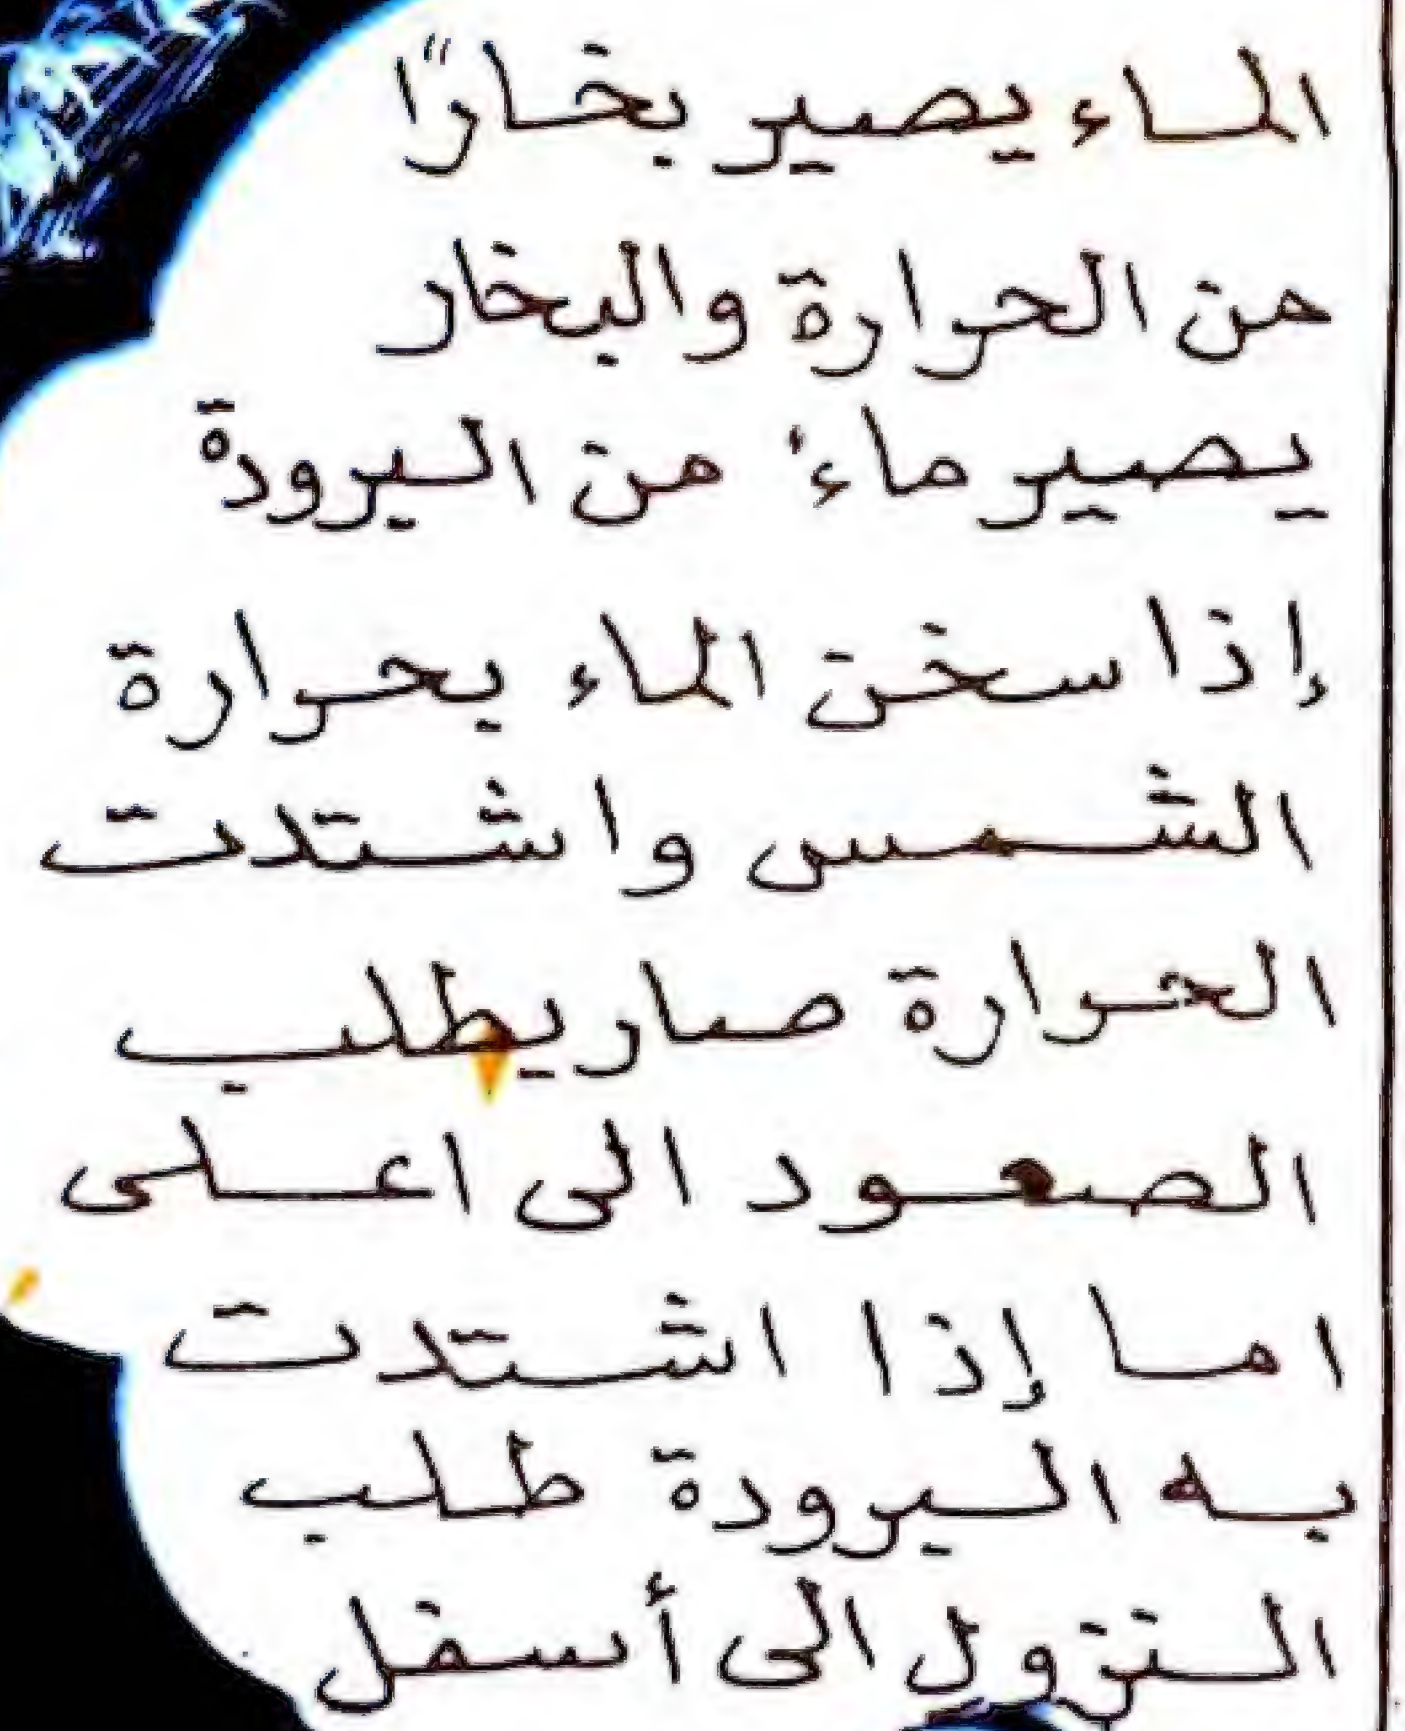 الماء يصير بخارًا
من الحرارة والبخار
يصير ماءً من البرودة
إذا سخن الماء بحرارة
الشمس واشتدت
الحرارة صار يطلب
الصعود الى اعلى
اما إذا اشتدت
به البرودة طلب
النزول الى أسفل